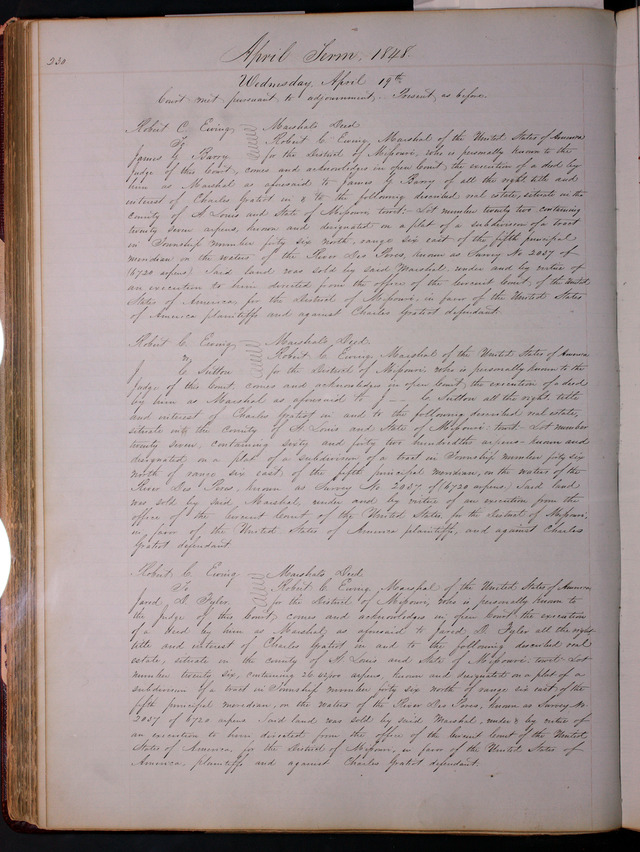 230
April Term, 1848.
Wednesday, April 19th
Court met pursuant to adjournment. Present as before.
Robert C. Ewing, Marshals Deed
To Robert C. Ewing, Marshal of the United States of America
James G. Barry. for the District of Missouri, who is personally known to the
Judge of this Court, comes and acknowledges in open Court, the execution of a deed by
him as Marshal as aforesaid to James G. Barry of all the right title and
interest of Charles Gratiot in & to the following described real estate, situate in the
County of St Louis and State of Missouri, towit: Lot number twenty two containing
twenty seven arpens, known and designated on a plat of a subdivision of a tract
in Township number fifty six North, range six east of the fifth principal
meridian on the waters of the River Des Peres, known as Survey No 2037 of
(6720 arpens) Said land was sold by said Marshal, under and by virtue of
an execution to him directed from the office of the Circuit Court, of the United
States of America, for the District of Missouri, in favor of the United States
of America plaintiffs and against Charles Gratiot defendant.
Robert C. Ewing, Marshals Deed
To Robert C. Ewing, Marshal of the United States of America
J C Sutton for the District of Missouri, who is personally known to the
Judge of this Court, comes and acknowledges in open Court, the execution of a deed
by him as Marshal as aforesaid to J C Sutton all the right title
and interest of Charles Gratiot in and to the following described real estate,
situate in the County of St. Louis and State of Missouri towit Lot number
twenty seven, containing sixty and fifty two hundredths arpens known and
designated on a plat of a subdivision of a tract in Township number fifty six
north of range six east of the fifth principal meridian, on the waters of the
River Des Peres, known as Survey No. 2037 of (6720 arpens) Said land
was sold by said Marshal, under and by virtue of an execution from the
office of the Circuit Court of the United States, for the District of Missouri,
in favor of the United States of America plaintiffs, and against Charles
Gratiot defendant.
Robert C. Ewing Marshals Deed
To Robert C. Ewing, Marshal of the United States of America,
Jared D. Tyler. for the District of Missouri, who is personally known to
the Judge of this Court, comes and acknowledges in open Court the execution
of a deed by him as Marshal, as aforesaid to Jared D. Tyler all the right
title and interest of Charles Gratiot in and to the following described real
estate, situate in the County of St Louis and State of Missouri towit Lot
number twenty six, containing 26 arpens, known and designated on a plat of a
subdivision of a tract in Township number fifty six north of range six east of the
fifth principal meridian, on the waters of the River Des Peres, known as Survey No.
2037 of 6720 arpens Said land was sold by said Marshal, under & by virtue of
an execution to him, directed from the office of the Circuit Court of the United
States of America, for the District of Missouri, in favor of the United States of
America, plaintiffs and against Charles Gratiot defendant.